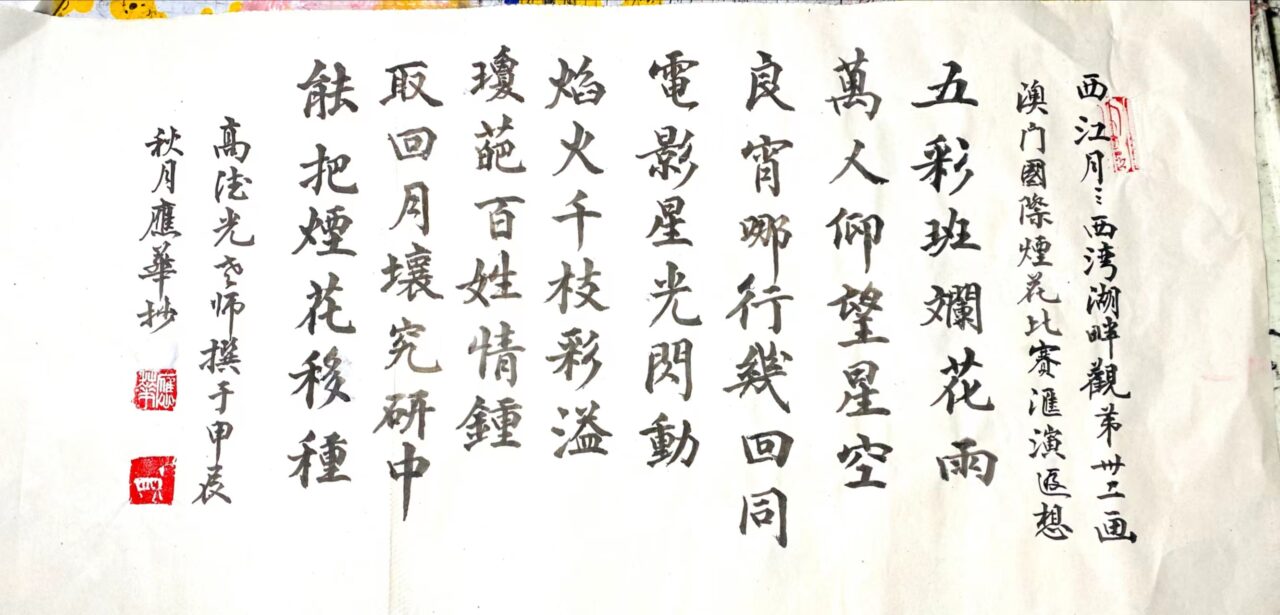 西江月：西湾湖畔觀第卅二画
澳门國際煙花比赛滙演遐想
五彩班斕花雨
萬人仰望星空
良宵哪行幾回同
電影星光閃動
焰火千枝彩溢
瓊葩百姓情鍾
取回月壤究研中
能把煙花移種
高德光老师撰于甲辰
秋月應華抄
應華